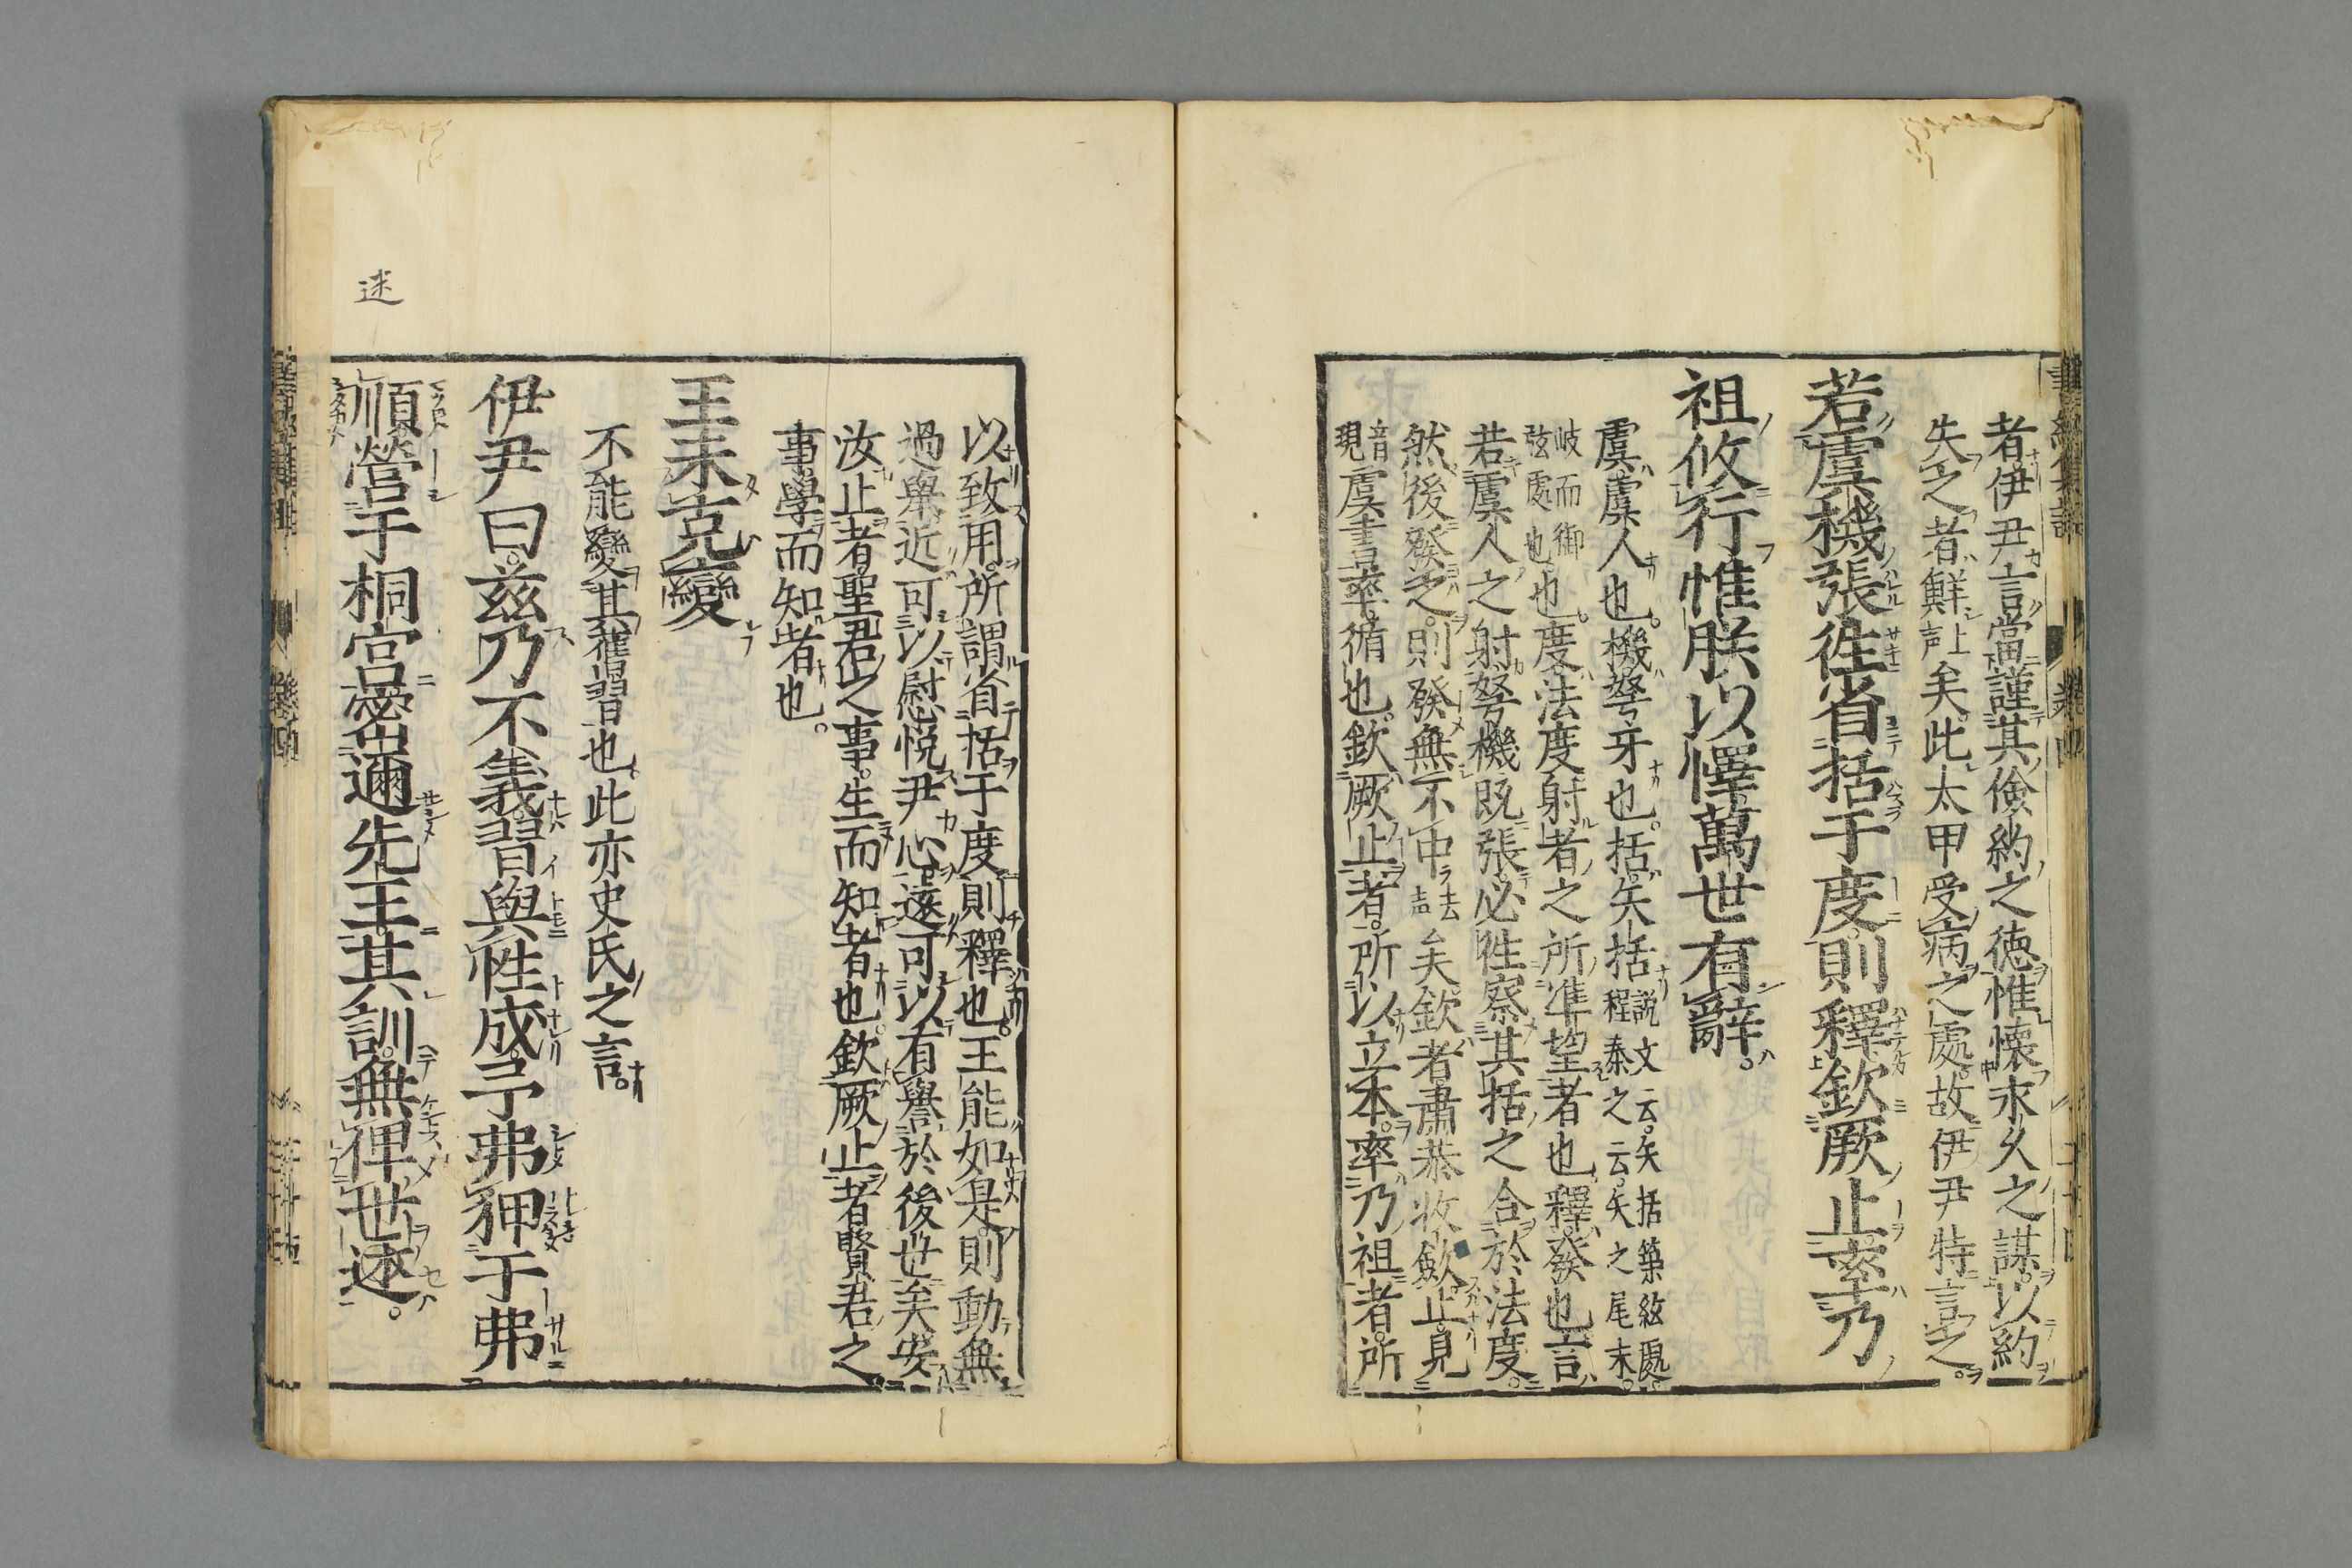 者伊尹言當謹其儉約之徳惟懐永久之謀以約
失之者鮮上声矣此太甲受病之處故伊尹特言之
若虞機張徃省括于度則釋欽厥止率乃
祖攸行惟朕以懌萬世有辭
虞虞人也機弩牙也括矢括説文云矢括築絃處程泰之云矢之尾末
岐而御弦處也也度法度射者之所準望者也釋發也言
若虞人之射弩機既張必徃察其括之合於法度
然後發之則發無不中去声矣欽者肅恭收斂止見
音現虞書率循也欽厥止者所以立本率乃祖者所
以致用所謂省括于度則釋也王能如是則動無
過舉近可以慰悦尹心遠可以有譽於後世矣安
汝止者聖君之事生而知者也欽厥止者賢君之
事學而知者也
王未克變
不能變其舊習也此亦史氏之言
伊尹曰茲乃不義習與性成予弗狎于弗
順營于桐宮密邇先王其訓無俾世迷
迷